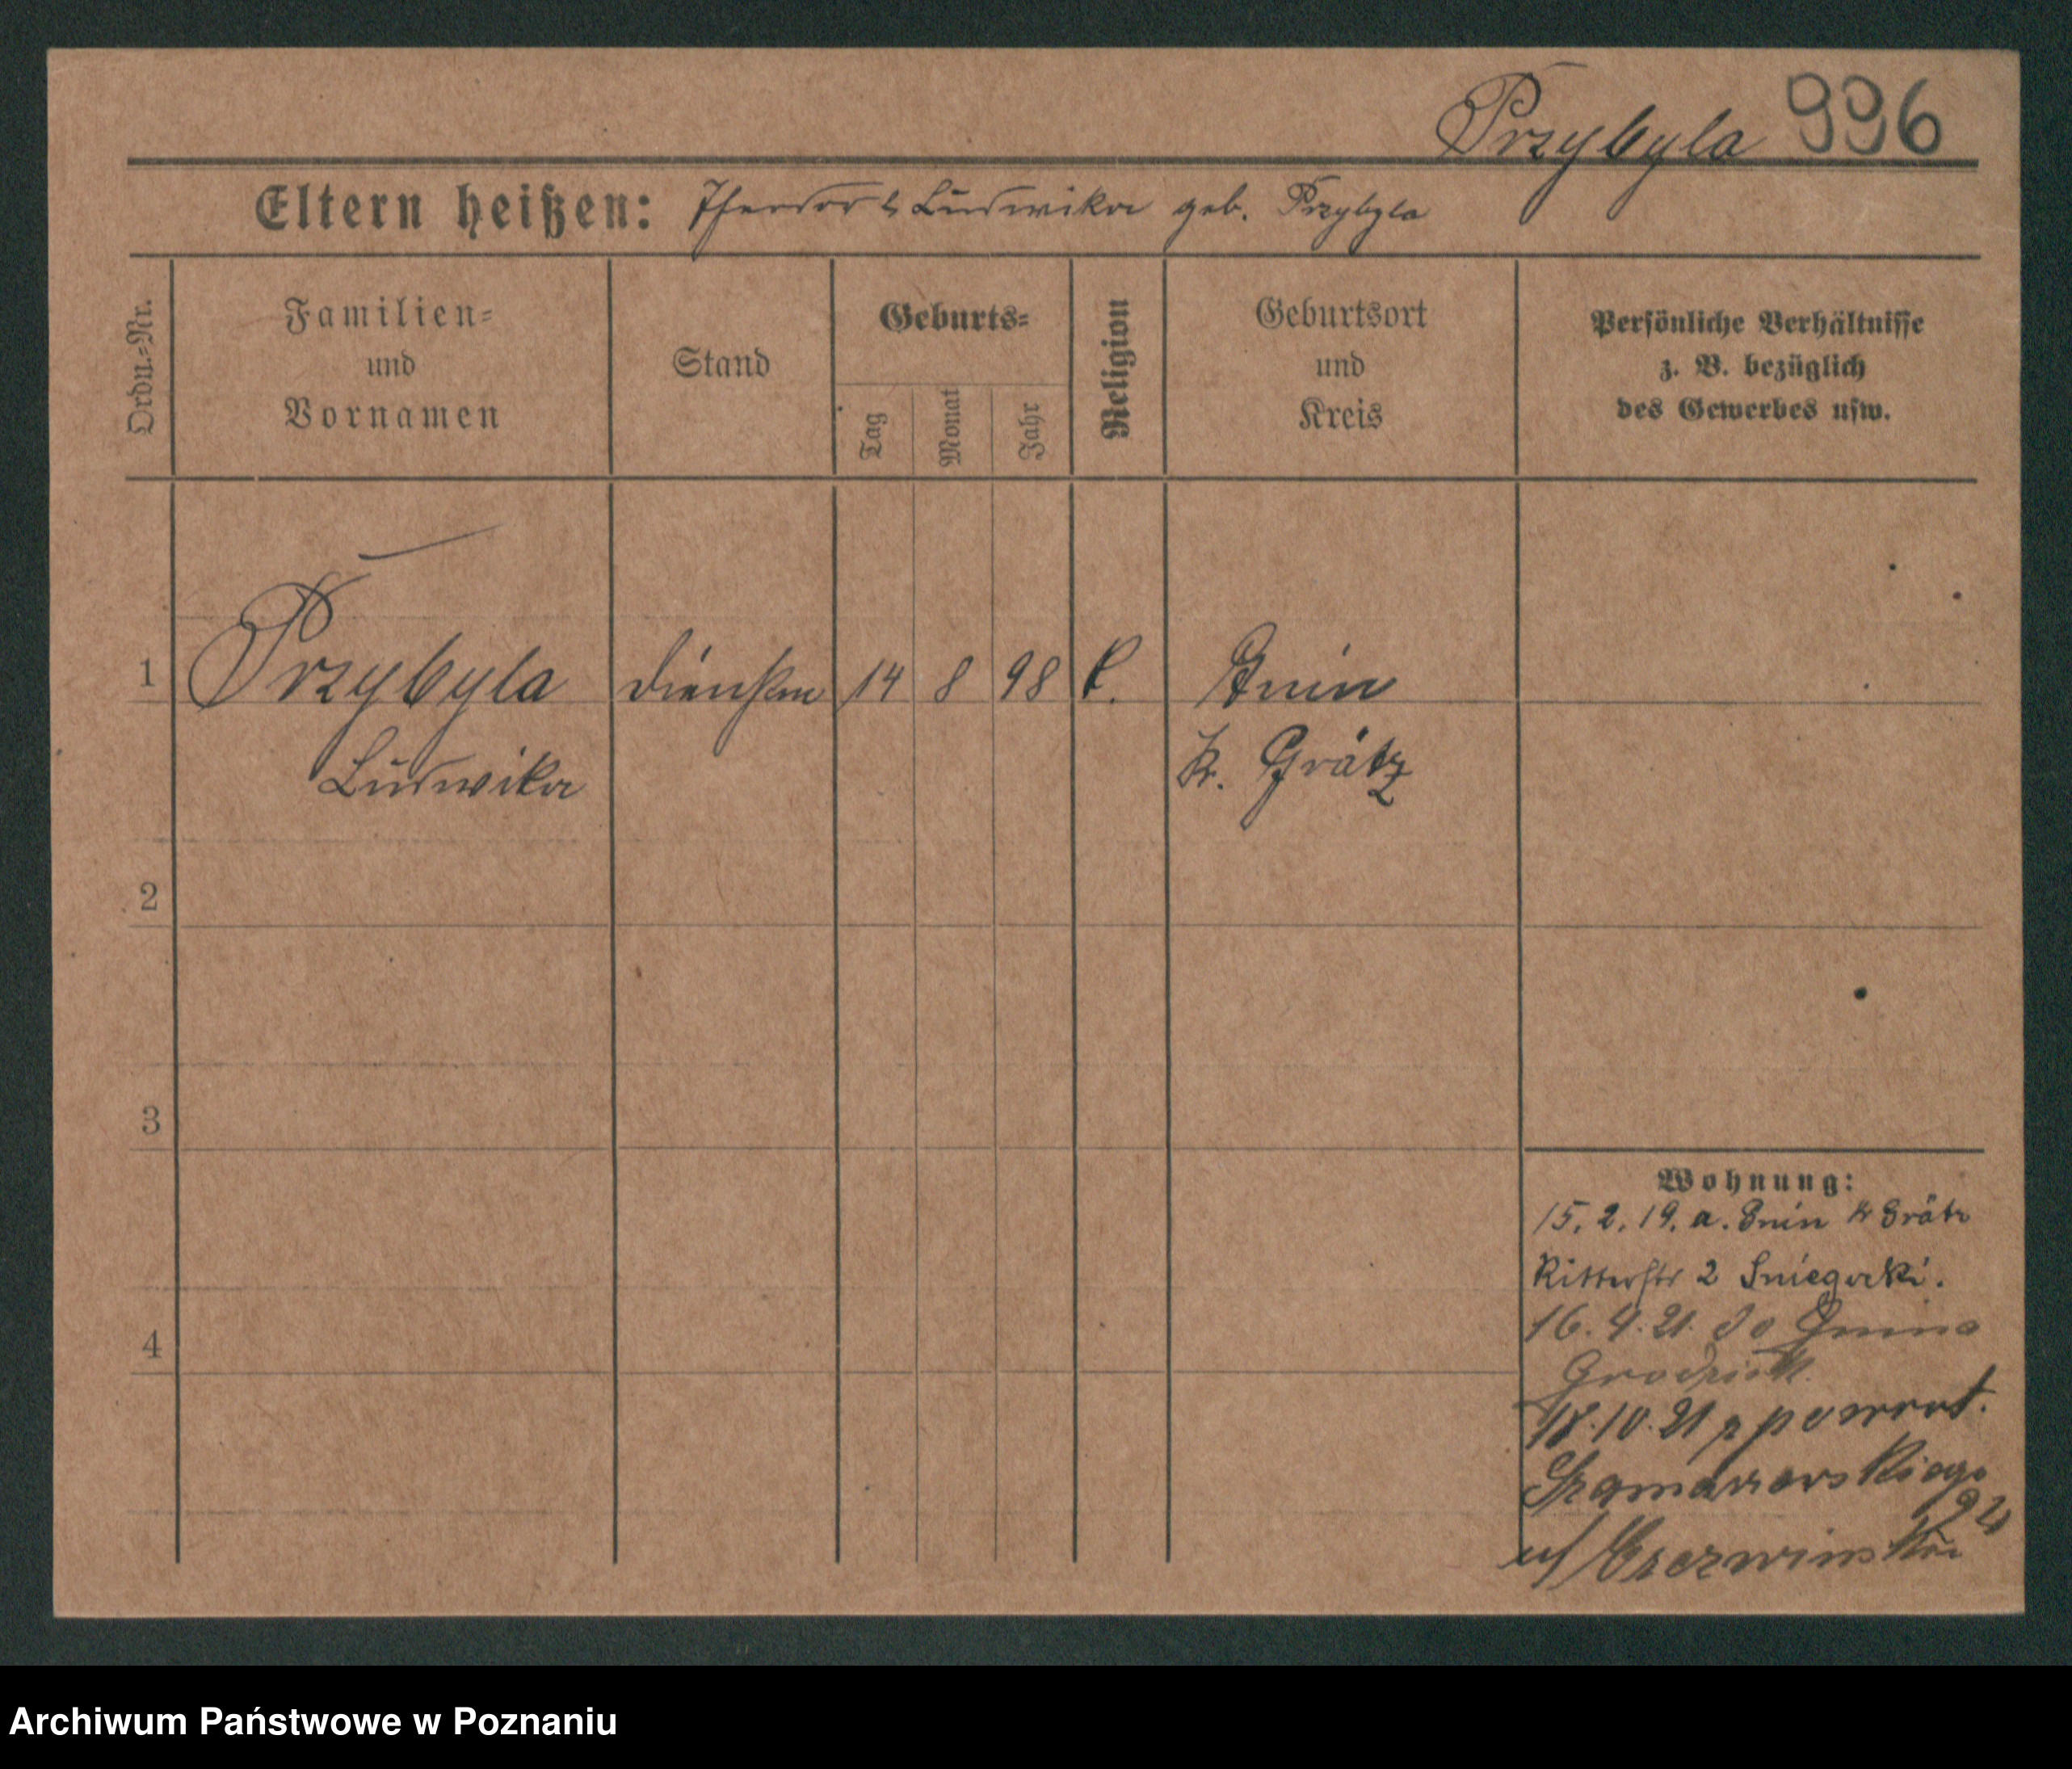 Przybyla 996
Eltern heißen: Theodor & Ludwika geb. Przybyla
Ordn.=Nr.
Familien=
und
Vornamen
Stand
Geburts=
Tag
Monat
Jahr
Religion
Geburtsort
und
Kreis
Persönliche Verhältnisse
z. B. bezüglich
des Gewerbes usw.
1 Przybyla 14 8 98 k. Gnin
Ludwika Kr. Grätz
2
3
4
Wohnung:
15. 2. 19. a. Gnin Kr Grätz
Ritterstr 2 Sniegocki.
16. 4. 21. do Gnina
Grodzisk.
18. 10. 21 z powrot.
Szamarzewskiego
u/ Czerwinska
Archiwum Państwowe w Poznaniu